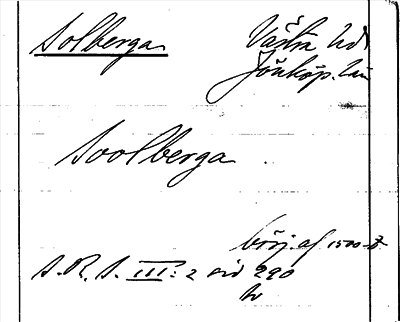 Solberga
Västra Hd
Jönköp. län
Soolberga
börj. af 1500-t.
S. R. S. III: 2 sid 290